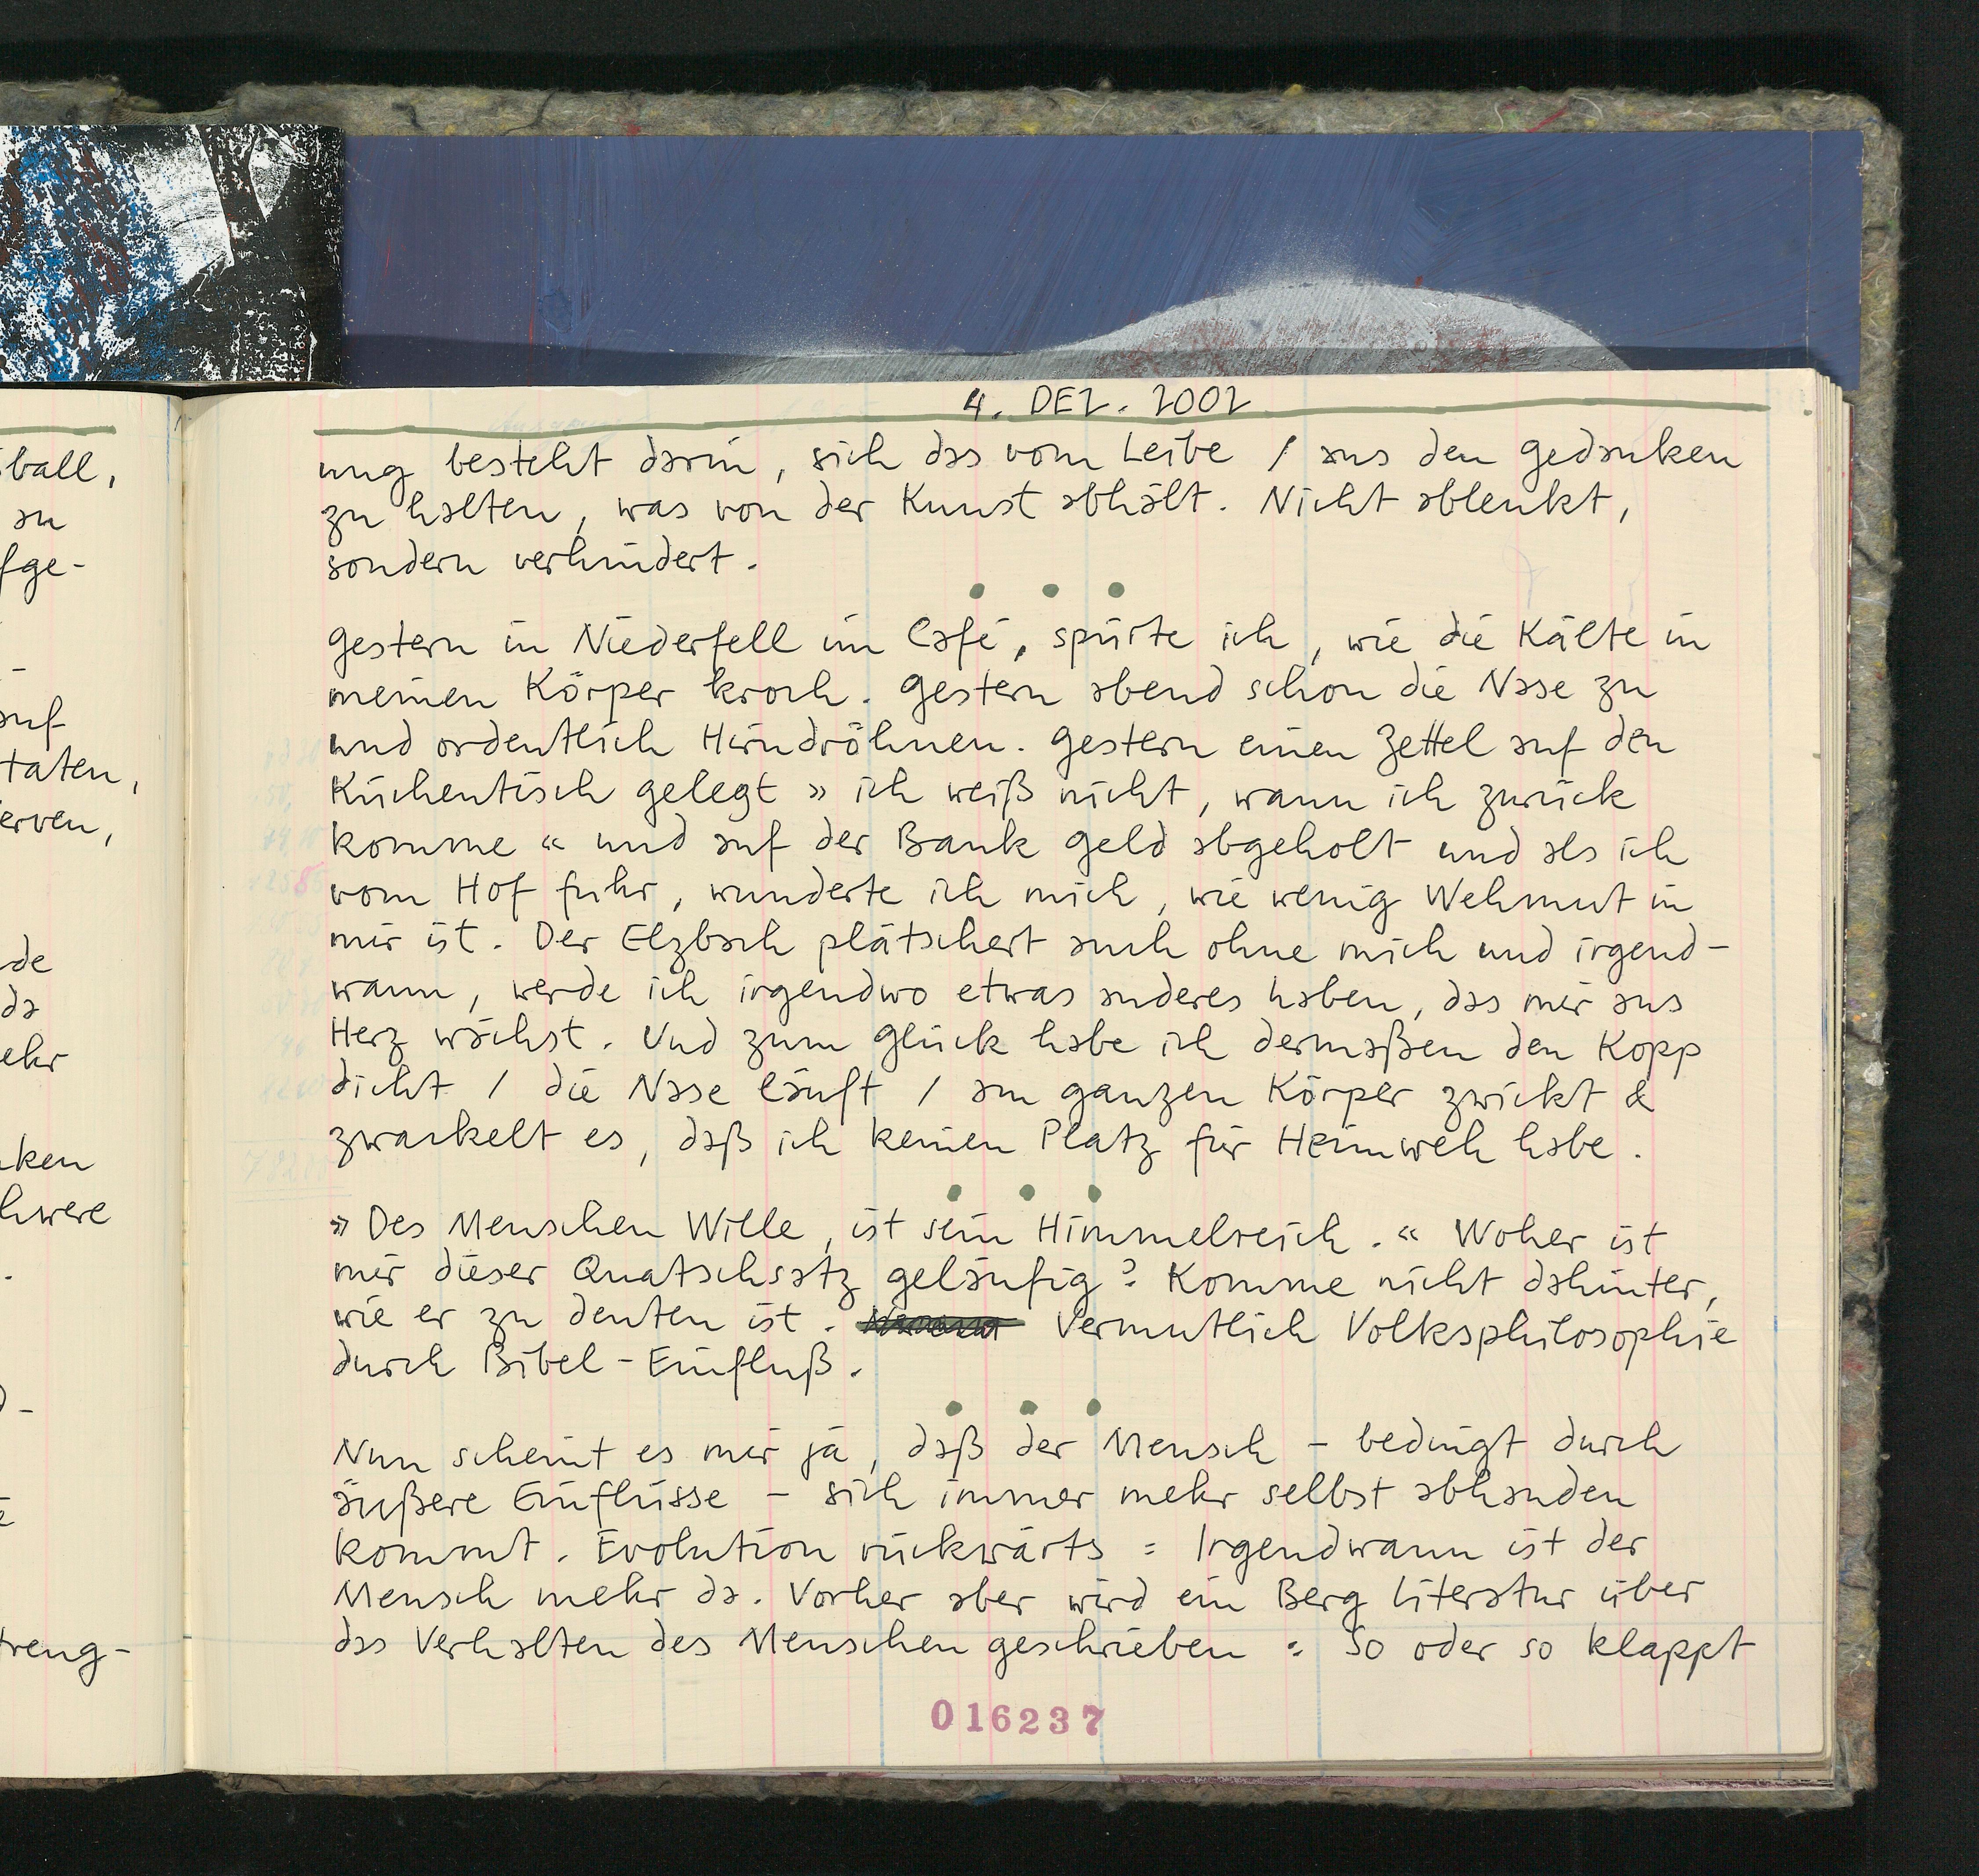 ball,
an
fge-
-
auf
taten,
erven,
de
da
ehr
ken
hwere
.
-
treng-
4. DEZ. 2002
ung besteht darin, sich das vom Leibe / aus den Gedanken
zu halten, was von der Kunst abhält. Nicht ablenkt,
sondern verhindert.
• • •
Gestern in Niederfell im Café, spürte ich, wie die Kälte in
meinen Körper kroch. Gestern abend schon die Nase zu
und ordentlich Hirndröhnen. Gestern einen Zettel auf den
Küchentisch gelegt » ich weiß nicht, wann ich zurück
komme « und auf der Bank Geld abgeholt und als ich
vom Hof fuhr, wunderte ich mich, wie wenig Wehmut in
mir ist. Der Elzbach plätschert auch ohne mich und irgend-
wann, werde ich irgendwo etwas anderes haben, das mir ans
Herz wächst. Und zum Glück habe ich dermaßen den Kopp
dicht / die Nase läuft / am ganzen Körper zwickt &
zwackelt es, daß ich keinen Platz für Heimweh habe.
• • •
» Des Menschen Wille, ist sein Himmelreich. « Woher ist
mir dieser Quatschsatz geläufig? Komme nicht dahinter,
wie er zu deuten ist. Vermutlich Volksphilosophie
durch Bibel-Einfluß.
• • •
Nun scheint es mir ja, daß der Mensch – bedingt durch
äußere Einflüsse – sich immer mehr selbst abhanden
kommt. Evolution rückwärts : Irgendwann ist der
Mensch mehr da. Vorher aber wird ein Berg Literatur über
das Verhalten des Menschen geschrieben : So oder so klappt
016237